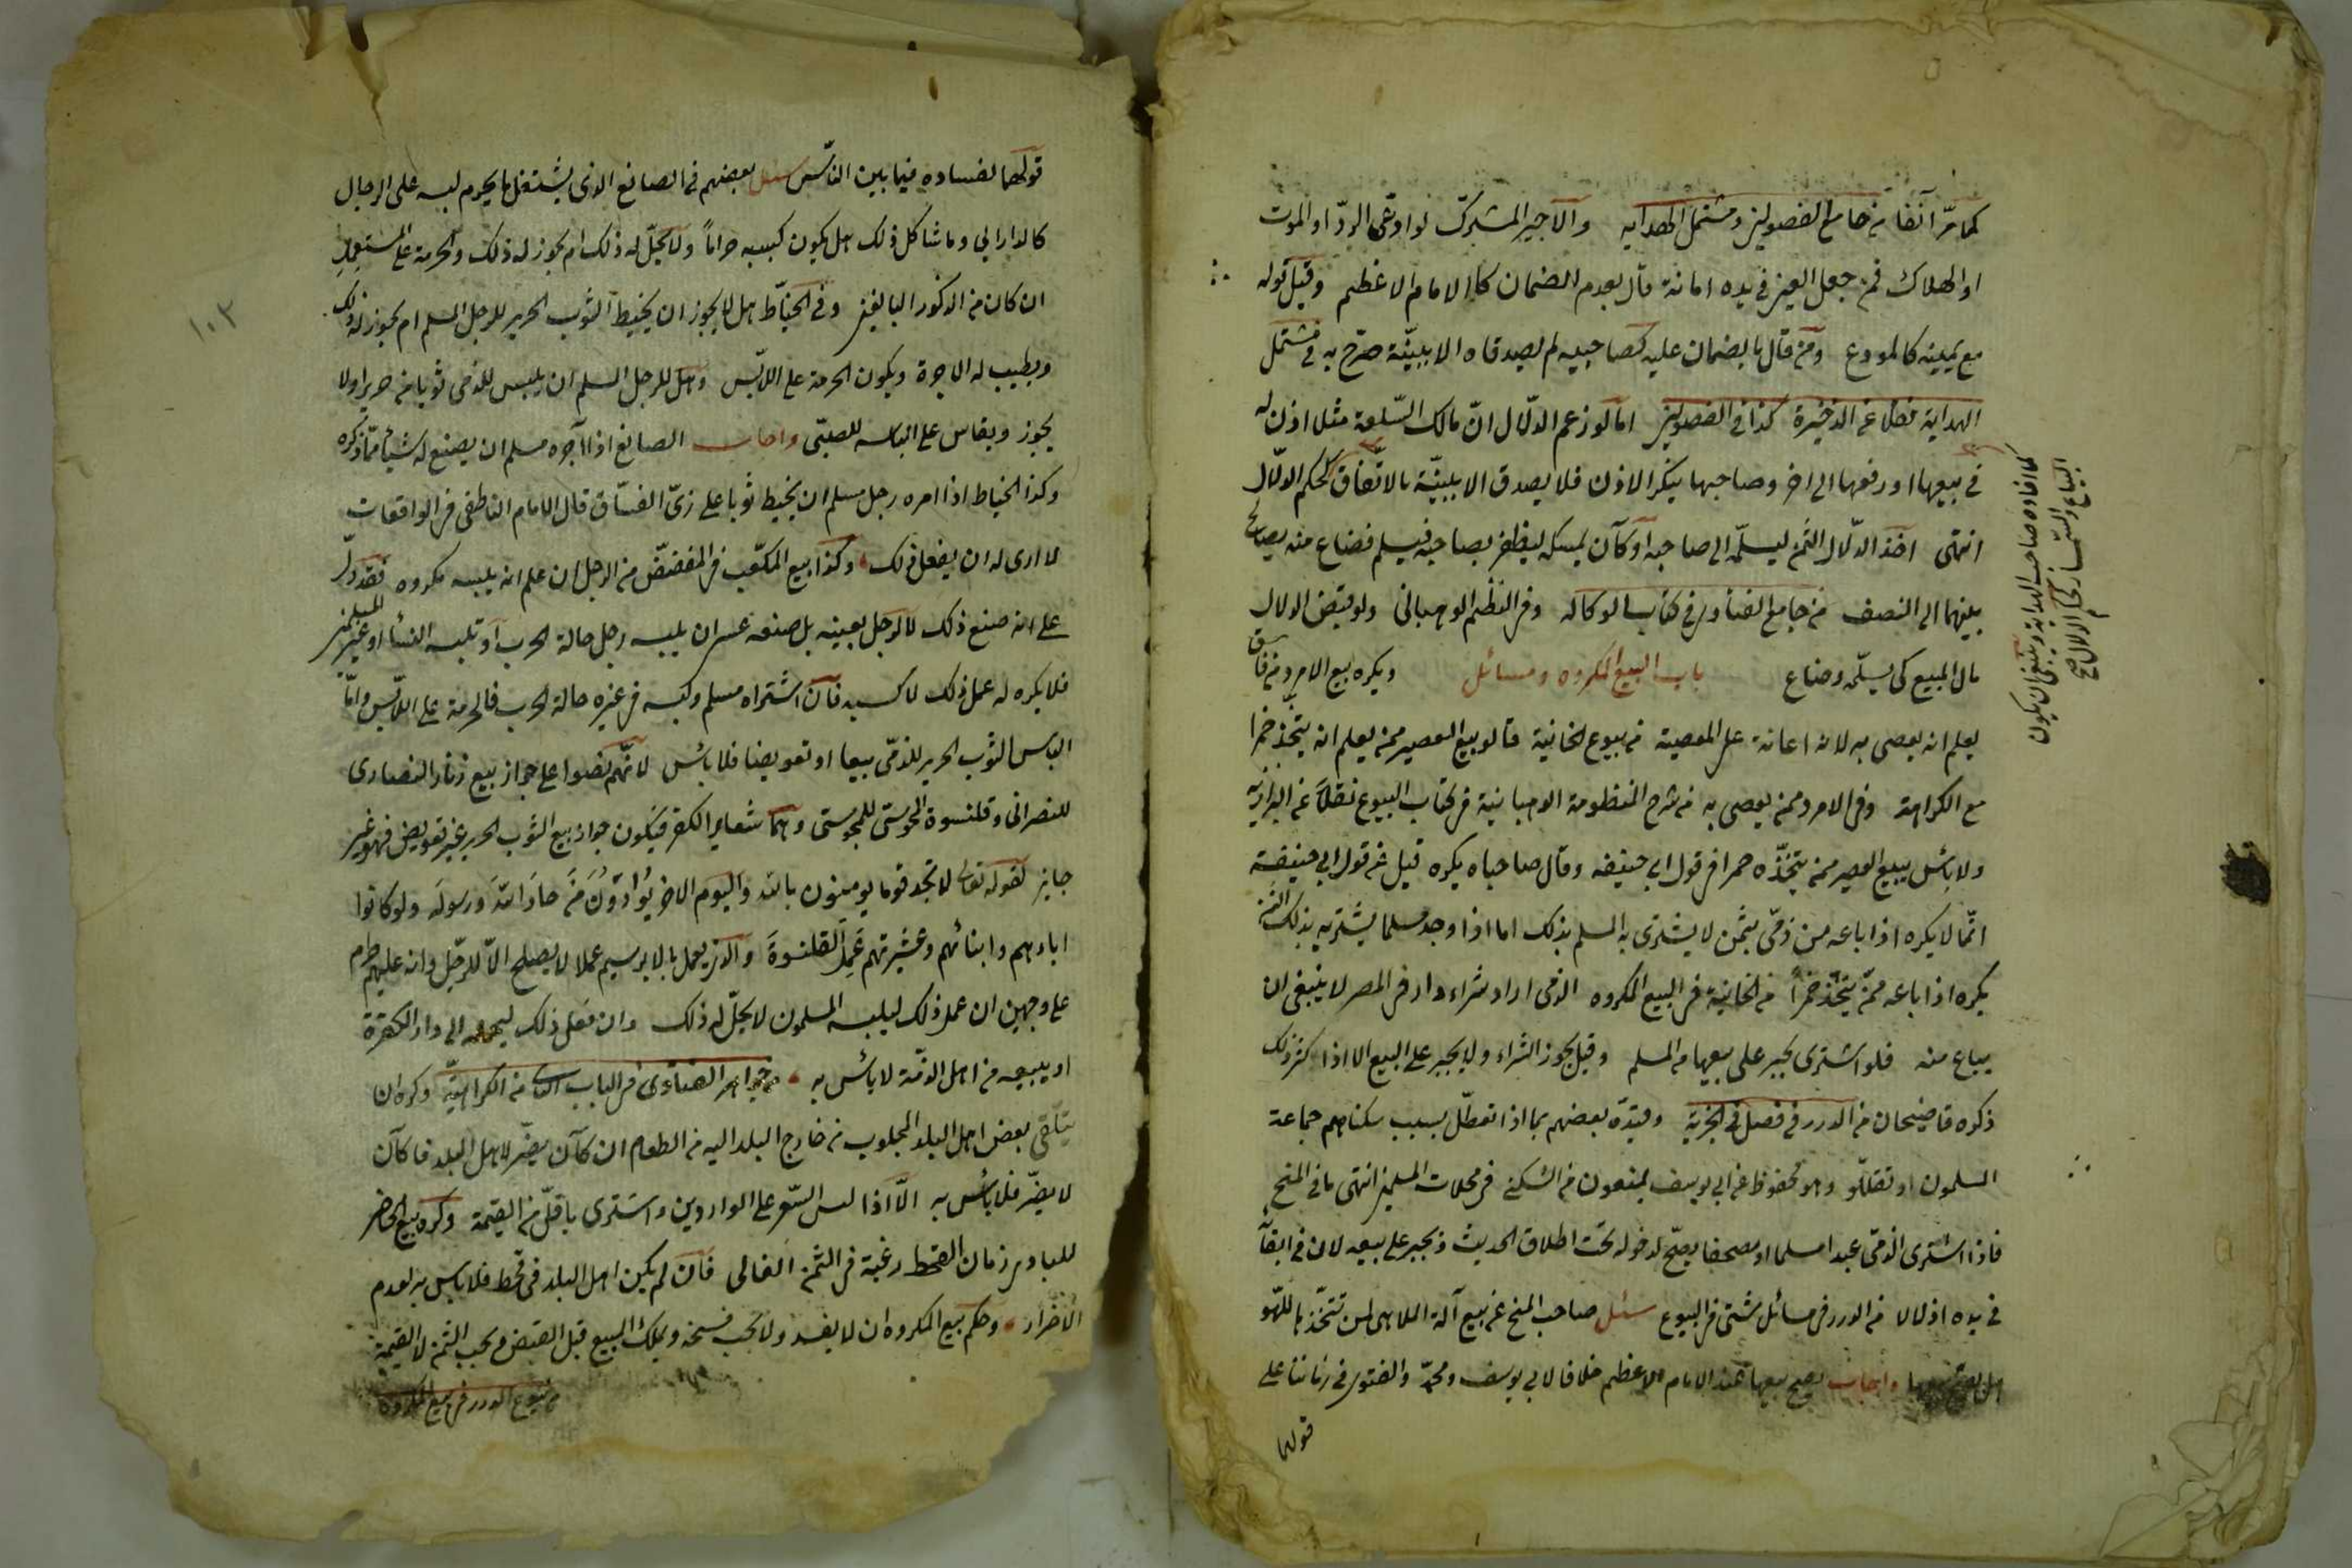 كما مرّ آنفا من جامع الفصولين ومشتمل الهدايه والاجير المشترك لو ادعى الردّ او الموت
او الهلاك فمن جعل العين فى يده امانة قال بعدم الضمان كالامام الاعظم وقبل قوله
مع يمينه كالمودع ومن قال بالضمان عليه كصاحبيه لم يصدقاه الا ببينّة صرّح به فى مشتمل
الهداية فضل عن الذخيرة كذا فى الفصولين اما لو زعم الدلّال انّ مالك السّلعة مثلا اذن له
فى بيعها او رفعها الى اخر وصاحبها ينكر الاذن فلا يصدق الا ببينّة بالاتّفاق كحكم الدلّال
انتهى اخذ الدلّال الثمن ليسلّمه الى صاحبه او كان يمسكه ليظفر بصاحبه فيسلم فضاع منه يصالح
بينهما الى النصف من جامع الفتاوى فى كتاب الوكاله وفى النظم الوهبانى ولو قبض الدلال
مال المبيع كى يسلّمه وضاع باب البيع المكروه ومسائل ويكره بيع الامرد من فاسق
يعلم انه يعصى به لانه اعانة على المعصية من بيوع الخانية قالو بيع العصير ممن يعلم انه يتّخذ خمرا
مع الكراهة وفى الامرد ممن يعصى به من شرح المنظومة الوهبانية فى كتاب البيوع نقلًا عن البزازيه
ولا بائس ببيع العصير ممن يتخذه خمرا فى قول ابى حنيفه وقال صاحباه يكره قيل عن قول ابى حنيفة
انّما لا يكره اذا باعه من ذمّى بثمن لا يشترى به المسلم بذلك اما اذا وجد مسلما يشتريه بذلك الثمن
يكره اذا باعه ممّن يتخّذ خمراً من الخانية فى البيع المكروه الذمى اراد شراء دار فى المصر لا ينبغى ان
يباع منه فلو اشترى يجبر على بيعها من المسلم وقيل يجوز الشراء ولا يجبر على البيع الا اذا كثر ذلك
ذكره قاضيخان من الدرر فى فصل فى الجزية وقيّده بعضهم بما اذا تعطّل بسبب سكناهم جماعة
المسلمون او تقلّلو وهو محفوظ عن ابى يوسف يمنعون من السّكنى فى محلات المسلمين انتهى ما فى المنح
فاذا اشترى الذمّى عبدا مسلما او مصحفا يصحّ لدخوله تحت اطلاق الحديث ويجبر على بيعه لان فى ابقاء
فى يده اذلالا من الدرر فى مسائل شتى فى البيوع سئل صاحب المنح عن بيع آلة الملاهى لمن تتخّذ باللهو
هل يصح بيعها واجاب يصح بيعها عند الامام الاعظم خلافا لابى يوسف ومحمّد والفتوى فى زماننا على
قولهما
كما افاده صاحب الهداية وينبغى ان يكون
البيّاع والسّمسار كحكم الدلال صح
قولهما لفساده فيما بين النّاس سئل بعضهم فى الصانع الذى يشتغل ما يحرم لبسه على الرجال
كالدارابى وما شاكل ذلك هل يكون كسبه حراماً ولا يحلّ له ذلك ام يجوز له ذلك والحرمة على المستعمل
ان كان من الذكور البالغين وفى الخيّاط هل لا يجوز ان يخيط الثوب الحرير للرجل المسلم ام يجوز له ذلك
ويطيب له الاجرة ويكون الحرمة على اللابّس وهل للرجل المسلم ان يلبس للذمى ثوبا من حرير اولا
يجوز ويقاس على الباسه للصبّى واجاب الصانع اذا آجره مسلم ان يصنع له شيأ ممّا ذكره
وكذا الخياط اذا امره رجل مسلم ان يخيط ثوبا على زىّ الفسّاق قال الامام الناطفى فى الواقعات
لا ارى له ان يفعل ذلك وكذا بيع المكعّب فى المفضّض من الرجل ان علم انه يلبسه مكروه فقد دلّ
على انه صنع ذلك لا لرجل بعينه بل صنعه عسى ان يلبسه رجل حالة الحرب او تلبسه النساء او غير المسلمين
فلا يكره له عمل ذلك لا كسبه فان اشتراه مسلم ولبسه فى غيره حالة الحرب فالحرمة على اللابّس وامّا
الباس الثوب الحرير للذمّى بيعا او تعويضا فلا بائس لانّهم نصّوا على جواز بيع زنار النصارى
للنصرانى وقلنسوة المجوسى للمجوسى وهما شعاير الكفر فيكون جواز بيع الثوب الحرير غير تعويض فهو غير
جايز لقوله تعالى لا تجد قوما يومنون بالله واليوم الاخر يُوادّونَ من حادّ الله ورسوله ولو كانوا
اباءهم وابنائهم وعشيرتهم عمل القلنسوة والذى يعمل بالابرسيم عملا لا يصلح الّا للرجل وانه عليهم حرام
على وجهين ان عمل ذلك ليلبسه المسلمون لا يحلّ له ذلك وان فعل ذلك ليحمله الى دار الكفرة
او يبيعه من اهل الذمّة لا بائس به جواهر الفتاوى فى الباب الثانى من الكراهيّة وكره ان
يتلّقى بعض اهل البلد المجلوب من خارج البلد اليه من الطعام ان كان يضرّ لاهل البلد فما كان
لا يضرّ فلا بائس به الّا اذا لبس السّعر على الواردين واشترى باقلّ من القيمة وكره بيع الحاضر
للبادى زمان القحط رغبة فى الثمن الغالى فان لم يكن اهل البلد فى قحط فلا باس به لعدم
الاضرار وحكم بيع المكروه ان لا يفسد ولا يجب فسخه ويملك المبيع قبل القبض ويجب الثمن لا القيمة
من بيوع الدرر فى بيع المكروه
١٠٣